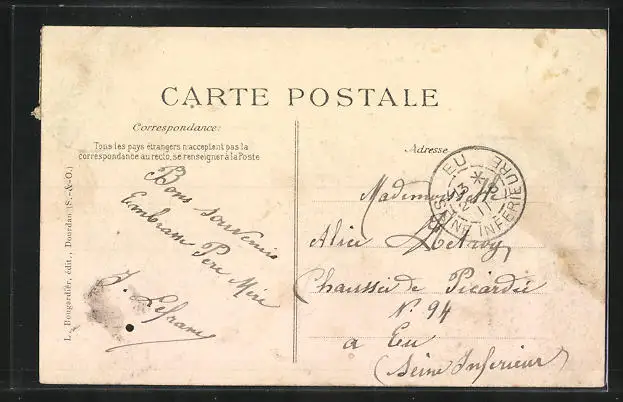 CARTE POSTALE
Correspondance:
Tous les pays étrangers n'acceptent pas la
correspondance au recto, se renseigner à la Poste
Bons souvenirs
Embrasse Père Mère
J. Lefranc
L. Bougardier, édit., Dourdan (S.-&-O.)
Adresse
Mademoiselle
Alice
Chaussée de Picardie
N. 94
a Eu
(Seine Inferieur)
EU
SEINE INFERIEURE